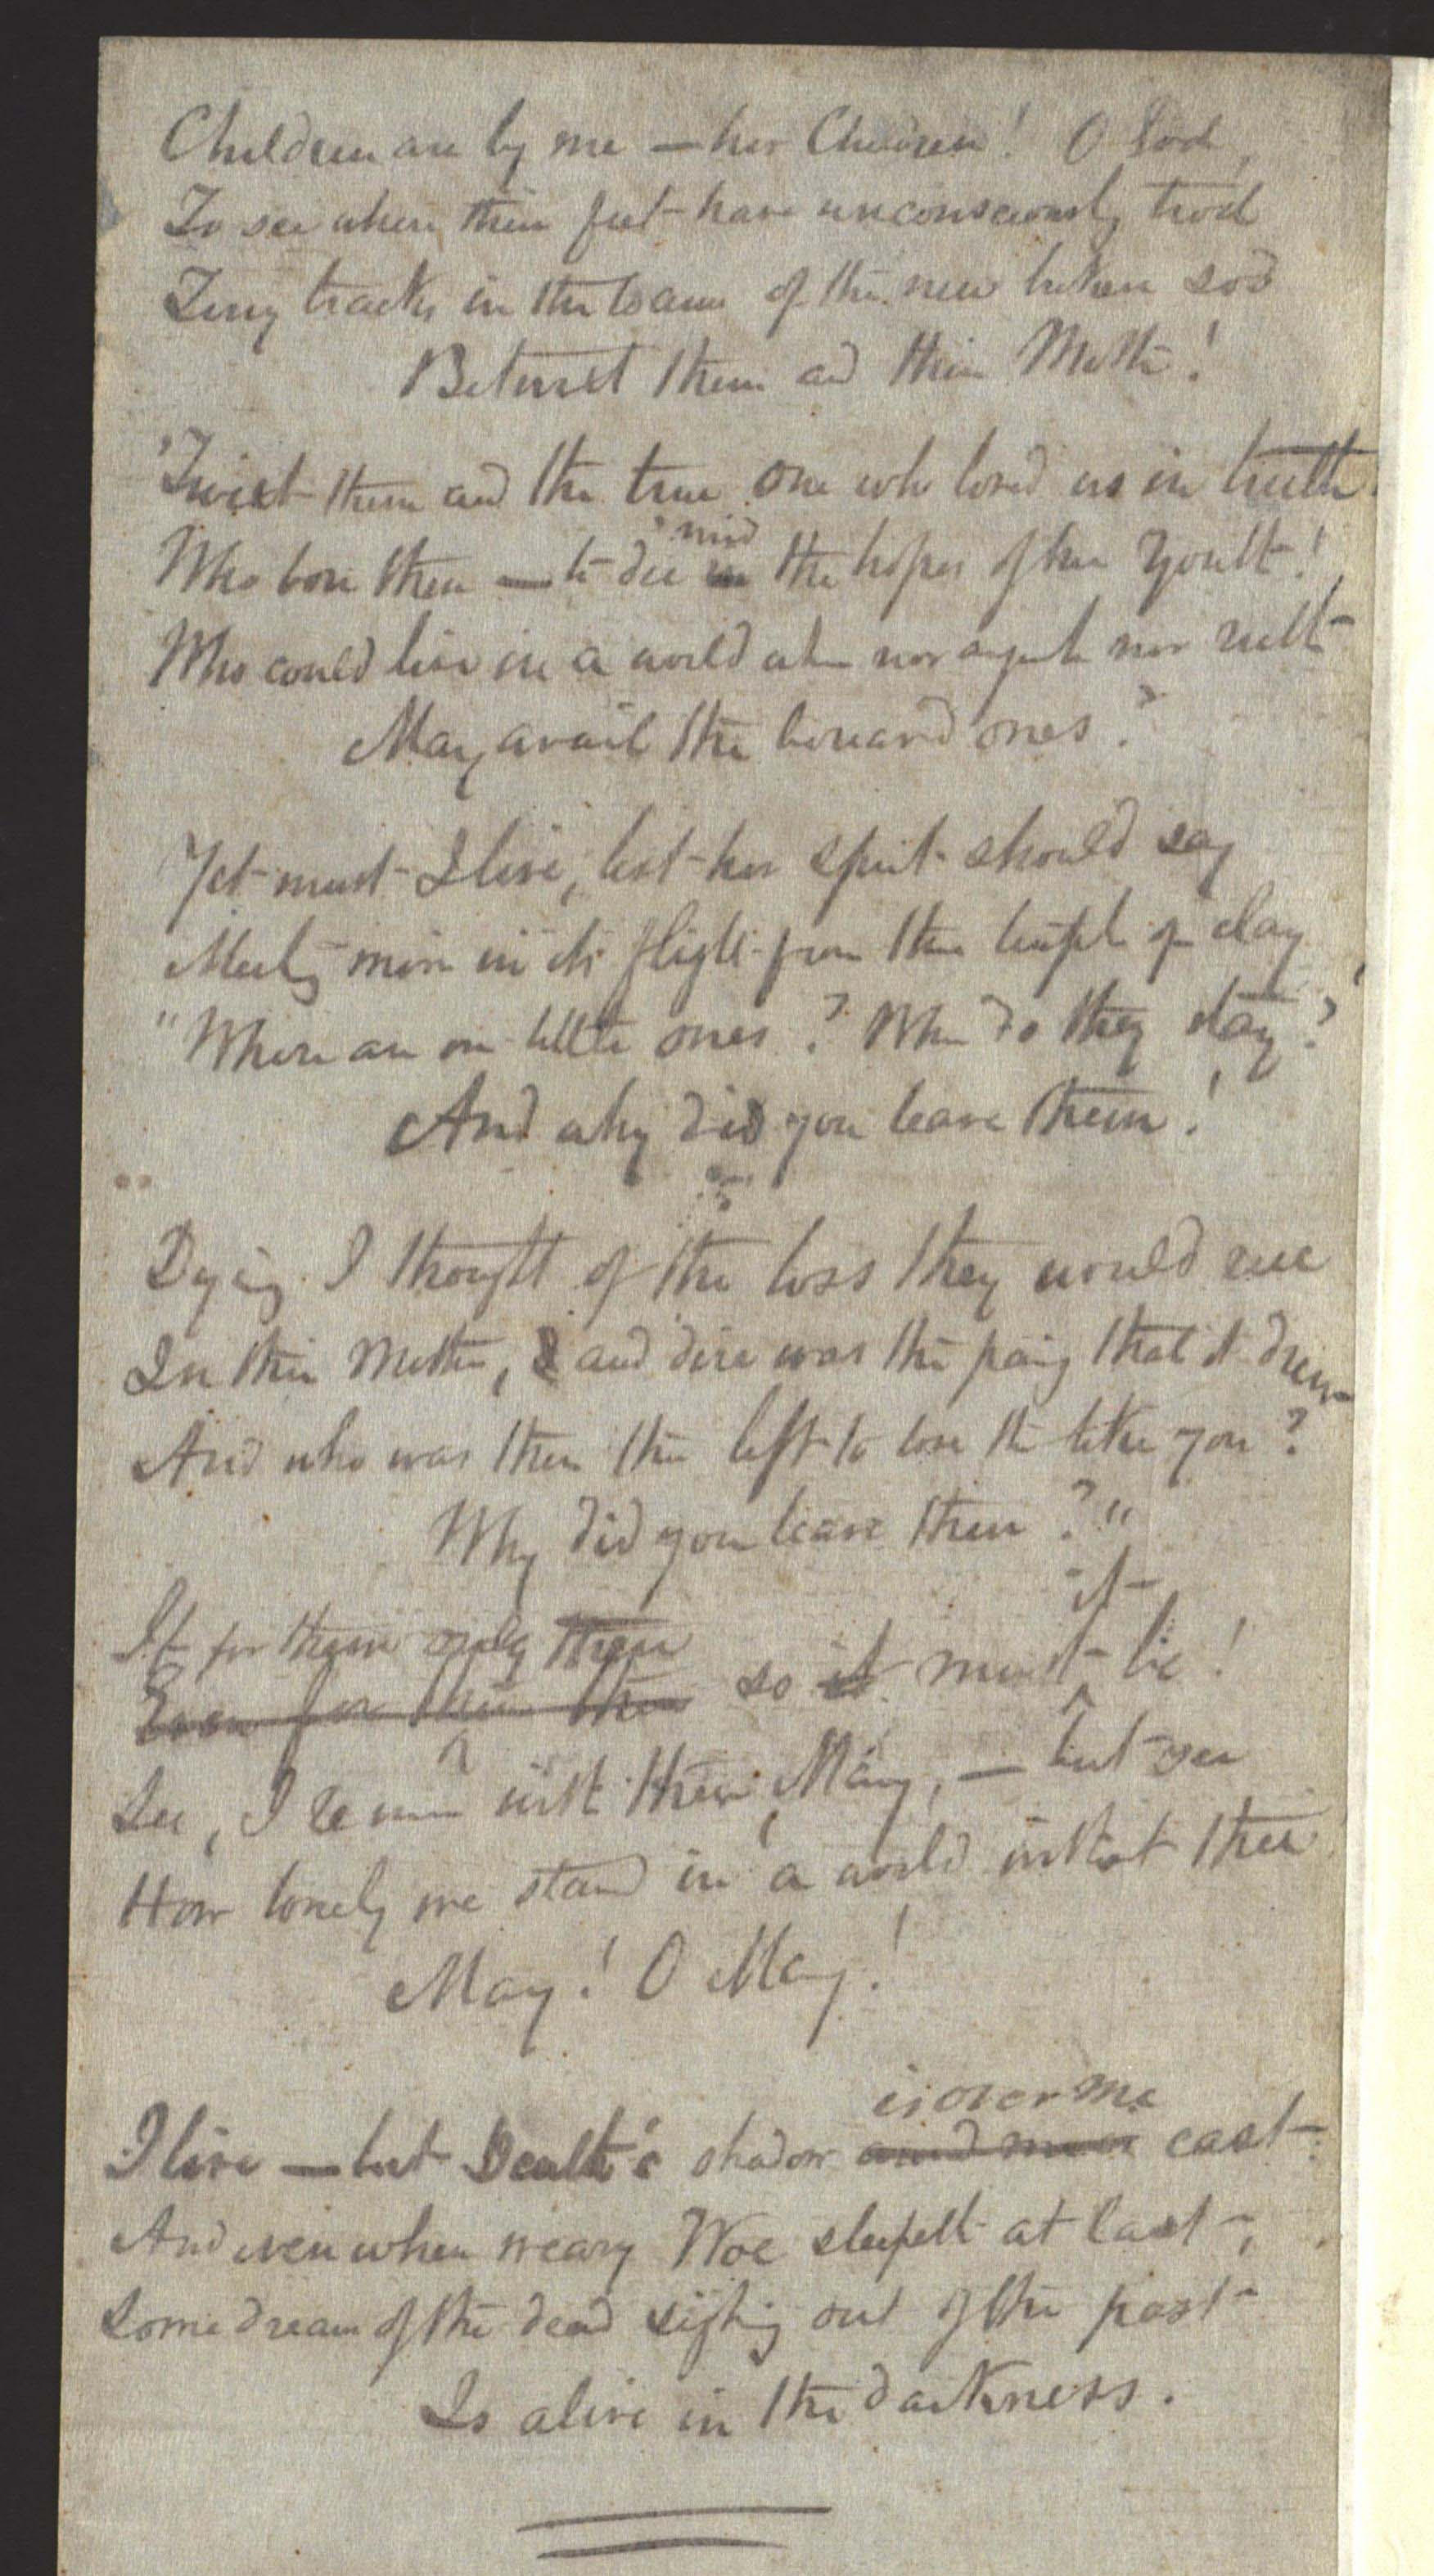 Children are by me — her Children! O God,
To see where their feet have unconsciously trod
Tiny tracks in the loam of the new broken sod
Betwixt them and their Mother!
'Twixt them and the true one who loved us in truth
'mid
Who bore them — to die in the hopes of her Youth!
Who could live in a world where nor anguish nor ruth
May avail the bereaved ones?
Yet must I live, lest her spirit should say
Meeting mine in its flight from the temple of clay
"Where are our little ones? Where do they stay?
And why did you leave them!
Dying I thought of the loss they would rue
In their Mother, & and dire was the pang that it drew
And who was there then left to love them like you?
Why did you leave them?"
it
If for them only then
Even for them then so it must be!
See, I remain with them, Mary, — but see
How lonely we stand in a world without thee
Mary! O Mary!
is over me
I live — but Death's shadow cast
And even when weary Woe sleepeth at last,
Some dream of the dead sighing out of the past
Is alive in the darkness.